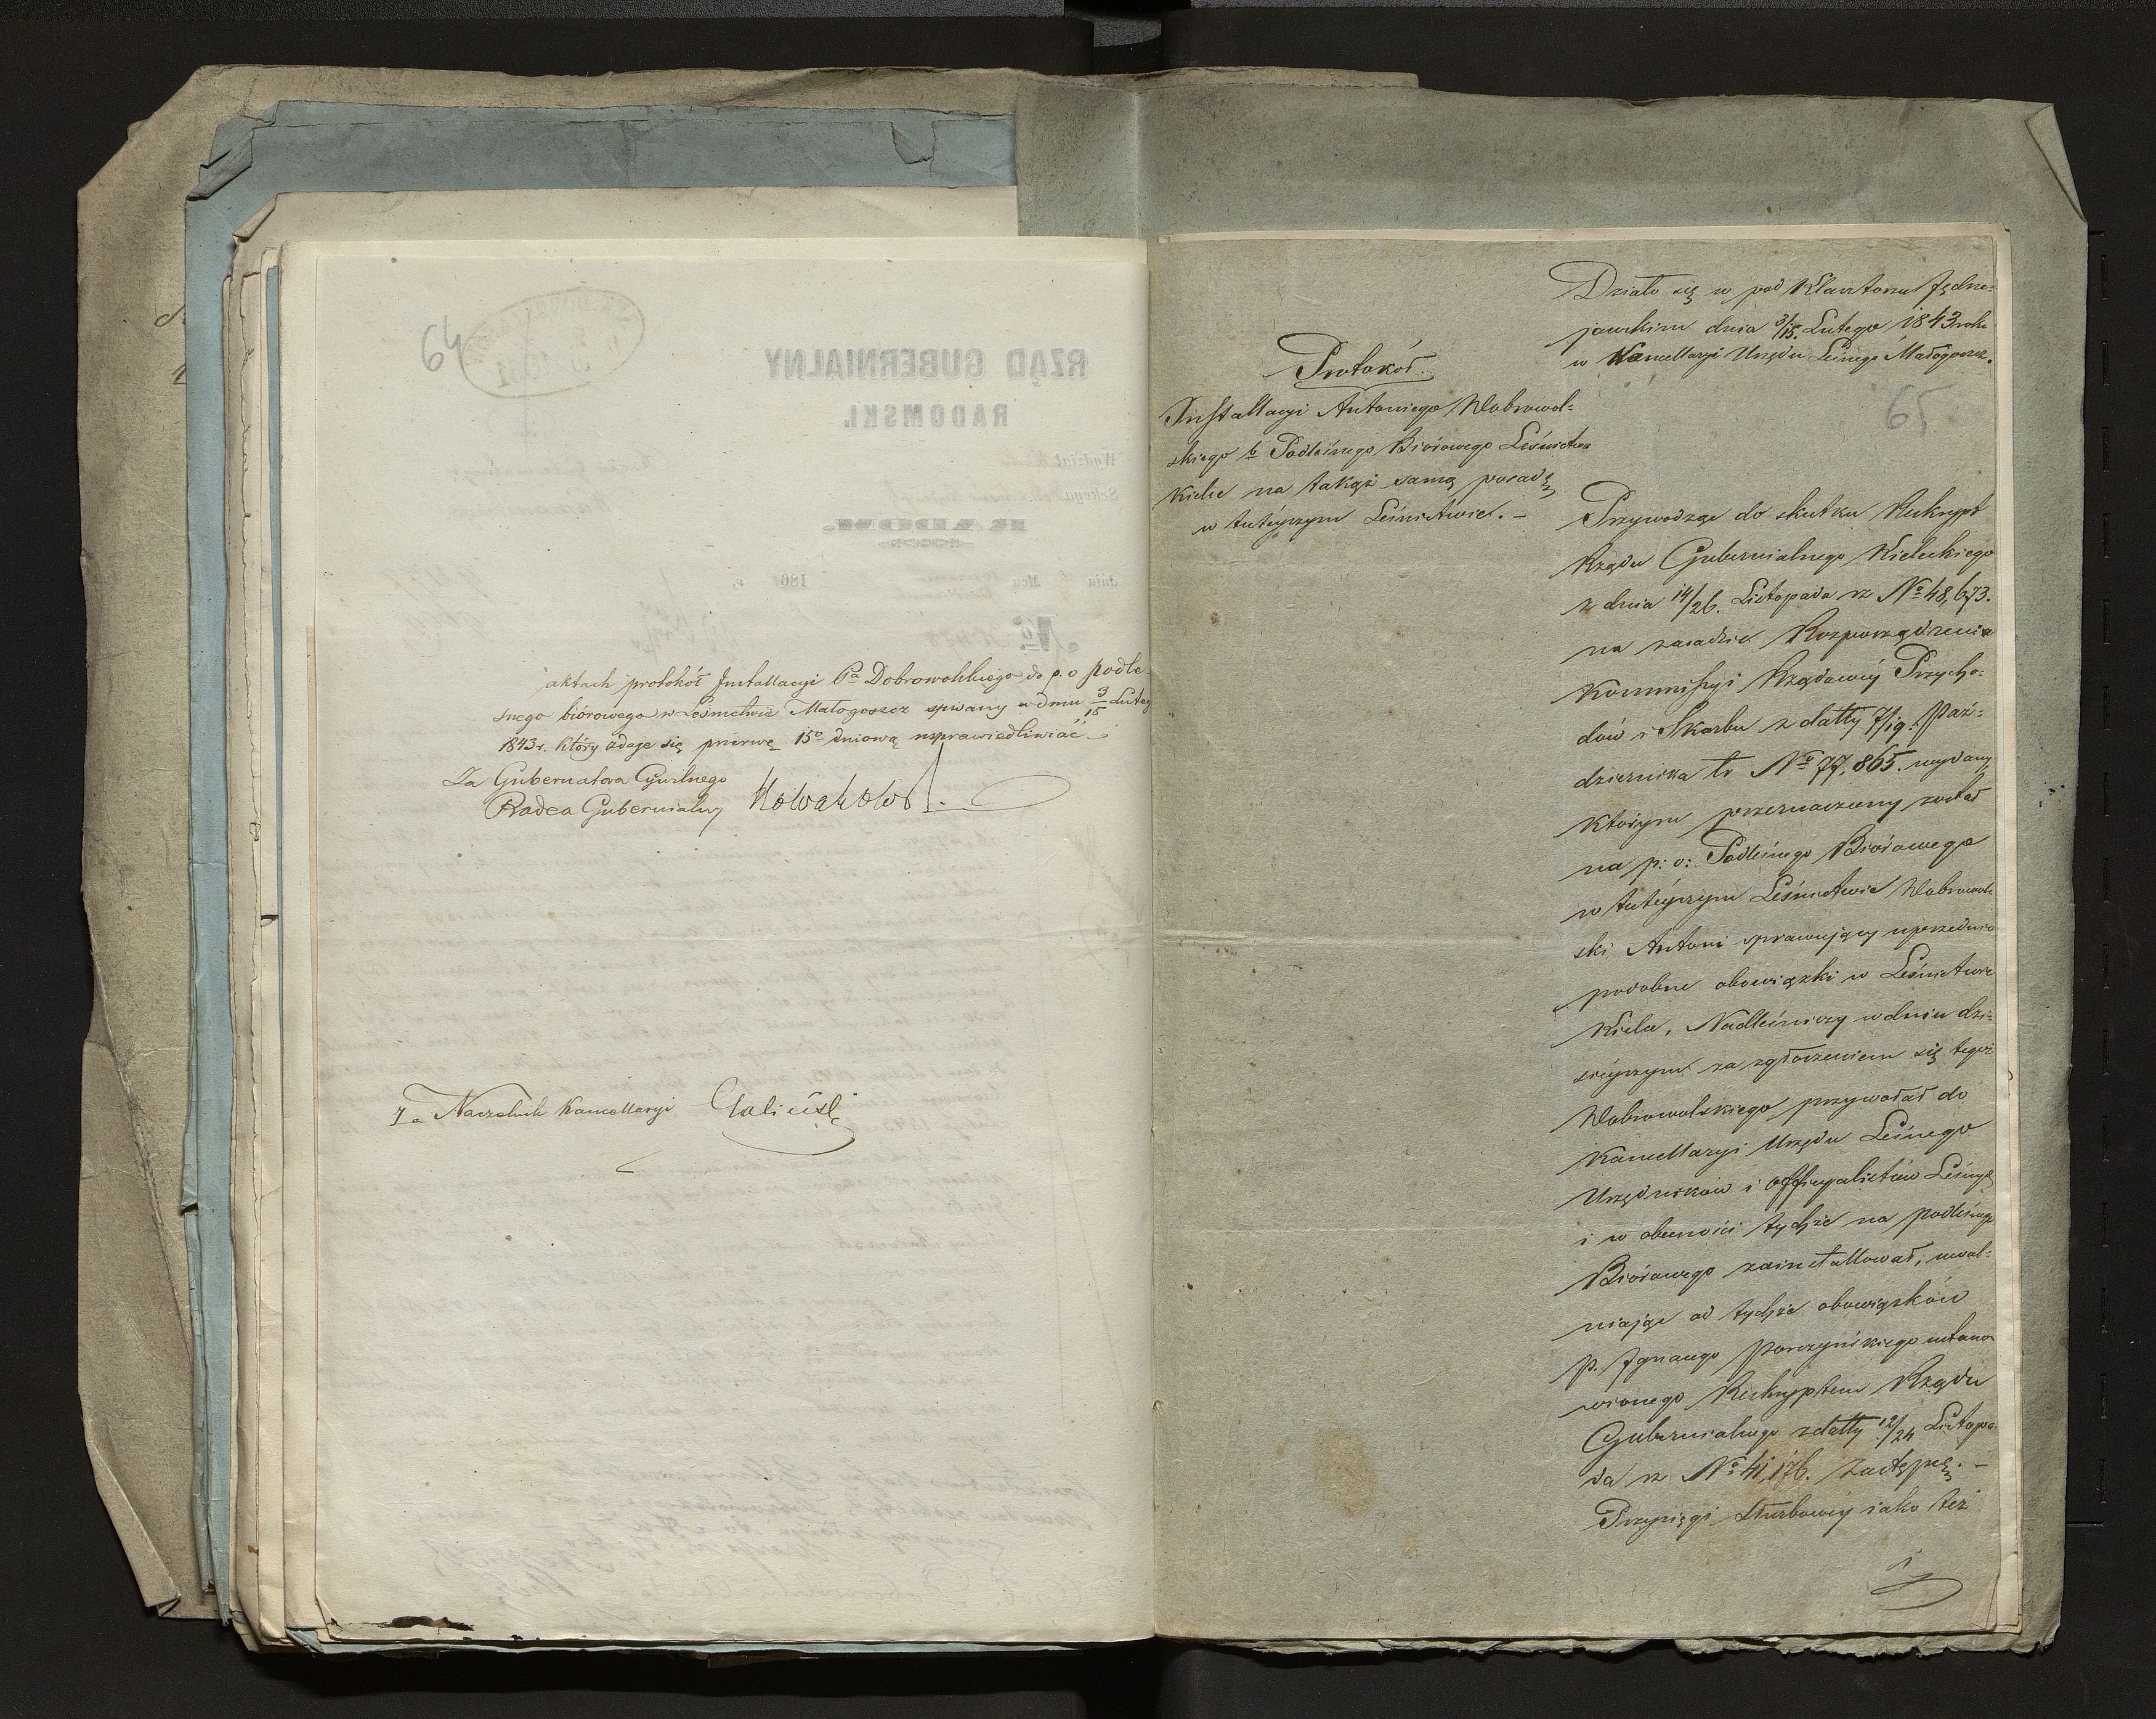 64
aktach protokół Instalacyi Pa Dobrowolskiego do p.o podle-
śnego biórowego w Leśnictwie Małogoszcz spisany w dniu 3/15 Luteg
1843 r. który zdaje się przerwę 15o dniową usprawiedliwiać
Za Gubernatora Cywilnego
Radca Gubernialny
Za Naczelnik Kancellaryi
RZĄD GUBERNIALNY
RADOMSKI.
Wydział
Sekcya
RADOM.
dnia Mca 186 r.
No.
Protokół
Installacyi Antoniego Dobrowol-
skiego Podleśnego Biórowego Leśnictwa
Kielce na takąż samą posadę
w tutéyszym Leśnictwie. –
Działo się w pod Klasztorzu Jędrze-
jowskim dnia 3/15. Lutego 1843 roku
w Kancellaryi Urzędu Leśnego Małogoszcz.
65
Przywodząc do skutku Reskrypt
Rządu Gubernialnego Kieleckiego
z dnia 14/26. Listopada rz No 48,673.
na zasadzie Rozporządzenia
Kommissyi Rządowéy Przycho-
dów i Skarbu z datty 7/19. Paź-
dziernika tr No 77,865. wydany,
którym przeznaczony został
na p: o: Podleśnego Biórowego
w tutéyszym Leśnictwie Dobrowol-
ski Antoni sprawujący uprzednio
podobne obowiązki w Leśnictwie
Kielce, Nadleśniczy w dniu dzi-
siéyszym za zgłoszeniem się tegoż
Dobrowolskiego przywołał do
Kancellaryi Urzędu Leśnego
Urzędników i Officyalistów Leśnych
i w obecności tychże na podleśnego
Biórowego zainstallował, uwal-
niając od tychże obowiązków
p. Ignacego Porczyńskiego ustano-
wionego Reskryptem Rządu
Gubernialnego z datty 12/24 Listopa-
da rz No 41,176. zastępcę. –
Przysięgi Służbowéy iako też